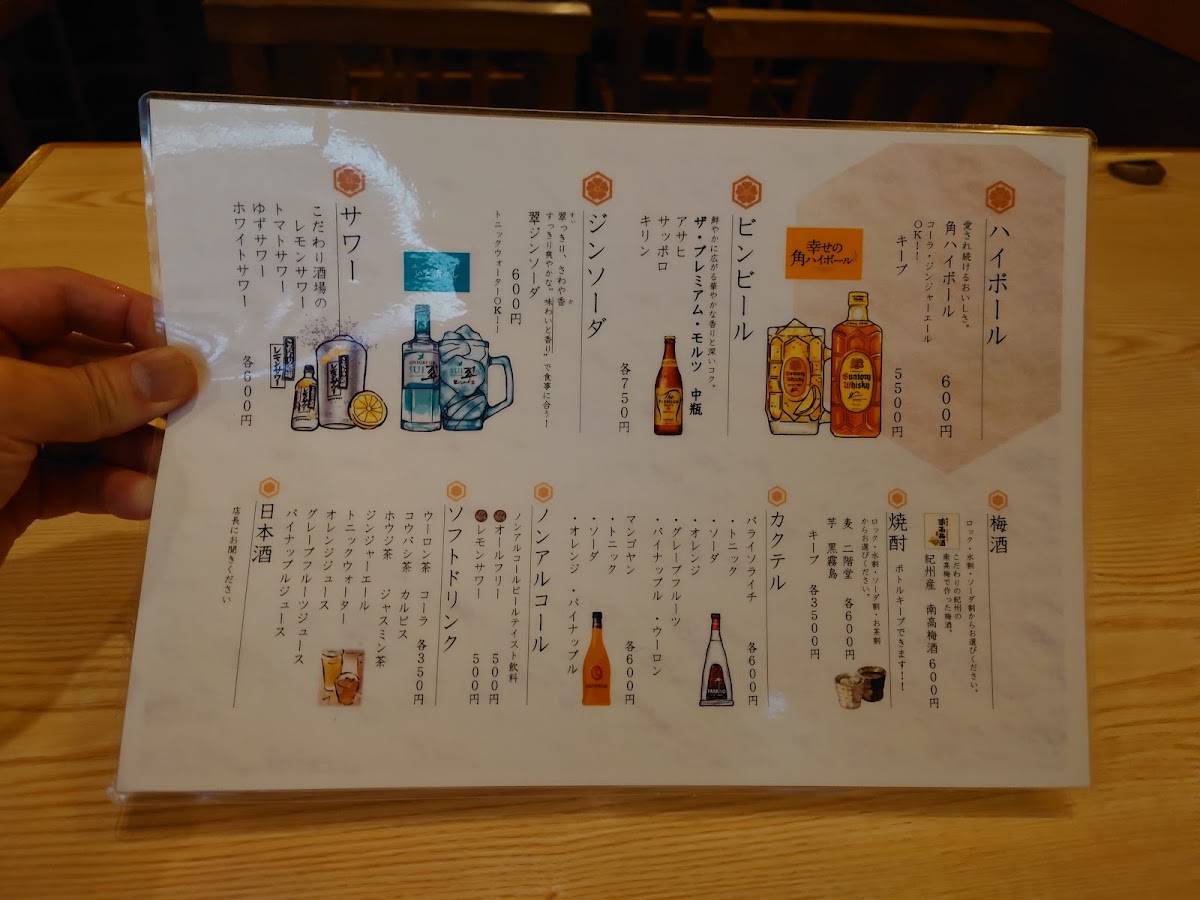 ハイボール
愛され続けるおいしさ。
角ハイボール 600円
コーラ・ジンジャーエール
OK!!
キープ 5500円
幸せの
角ハイボール
SUNTORY
Whisky
ビンビール
鮮やかに広がる華やかな香りと深いコク。
ザ・プレミアム・モルツ 中瓶
アサヒ
サッポロ
キリン
各750円
ジンソーダ
翠っきり、さわや香
すっきり爽やかな"味わいと香り"で食事に合う!
翠ジンソーダ
600円
トニックウォーターOK!!
SUI
翠
サワー
こだわり酒場の
レモンサワー
トマトサワー
ゆずサワー
ホワイトサワー
各600円
こだわり酒場の
レモンサワー
梅酒
ロック・水割・ソーダ割からお選びください。
こだわりの紀州の
南高梅で作った梅酒。
紀州産 南高梅酒 600円
南高梅酒
焼酎 ボトルキープできます!!
ロック・水割・ソーダ割・お茶割
からお選びください。
麦 二階堂 各600円
芋 黒霧島
キープ 各3500円
カクテル
パライソライチ 各600円
・トニック
・ソーダ
・オレンジ
・グレープフルーツ
・パイナップル ・ウーロン
マンゴヤン 各600円
・トニック
・ソーダ
・オレンジ ・パイナップル
ノンアルコール
ノンアルコールビールテイスト飲料
オールフリー 500円
レモンサワー 500円
ソフトドリンク
ウーロン茶 コーラ 各350円
コウバシ茶 カルピス
ホウジ茶 ジャスミン茶
ジンジャーエール
トニックウォーター
オレンジジュース
グレープフルーツジュース
パイナップルジュース
日本酒
店長にお聞きください